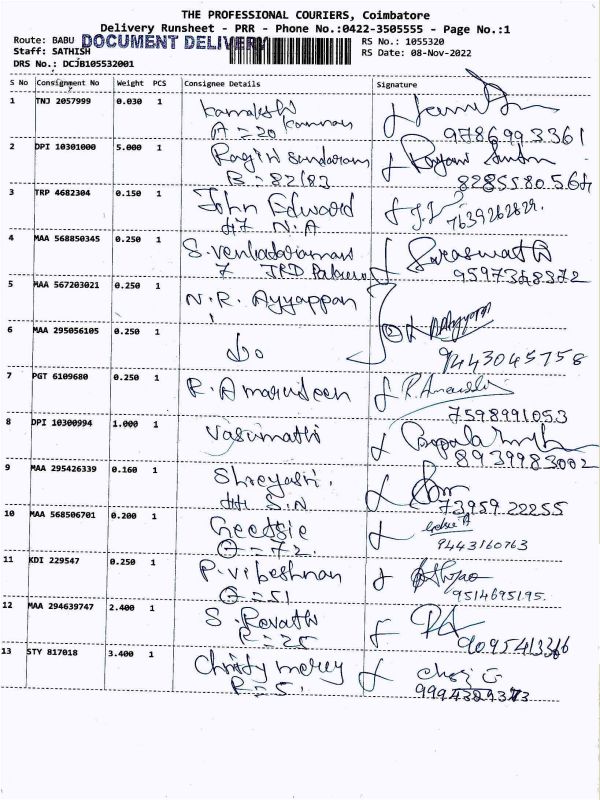 THE PROFESSIONAL COURIERS, Coimbatore
Delivery Runsheet - PRR - Phone No.:0422-3505555 - Page No.:1
Route: BABU DOCUMENT DELIVERY RS No.: 1055320
Staff: SATHISH RS Date: 08-Nov-2022
DRS No.: DCJB105532001
S No Consignment No Weight PCS Consignee Details Signature
1 TNJ 2057999 0.030 1 Kamakshi
A = 20 Kannan 9786993361
2 DPI 10301000 5.000 1 Ragini Sundaram
B = 82/83 8285580564
3 TRP 4682304 0.150 1 John Edward
H7 N.A 7639262829.
4 MAA 568850345 0.250 1 S. Venkadaraman Saraswathi
7 9597348372
5 MAA 567203021 0.250 1 N.R. Ayyappan
6 MAA 295056105 0.250 1 do 2
9443045758
7 PGT 6109680 0.250 1 R. Amarudeen
7598991053
8 DPI 10300994 1.000 1 Vasumathi
8939983002
9 MAA 295426339 0.160 1 Shreyashi.
HH S.N 73959 22255
10 MAA 568506701 0.200 1 Geedsie
G = 72. 9443160763
11 KDI 229547 0.250 1 P. Vibeshnan
G = 51 9514695195.
12 MAA 294639747 2.400 1 S. Revathi
R = 25 9095413366
13 STY 817018 3.400 1 Christy mercy
R = 5. 9994329373